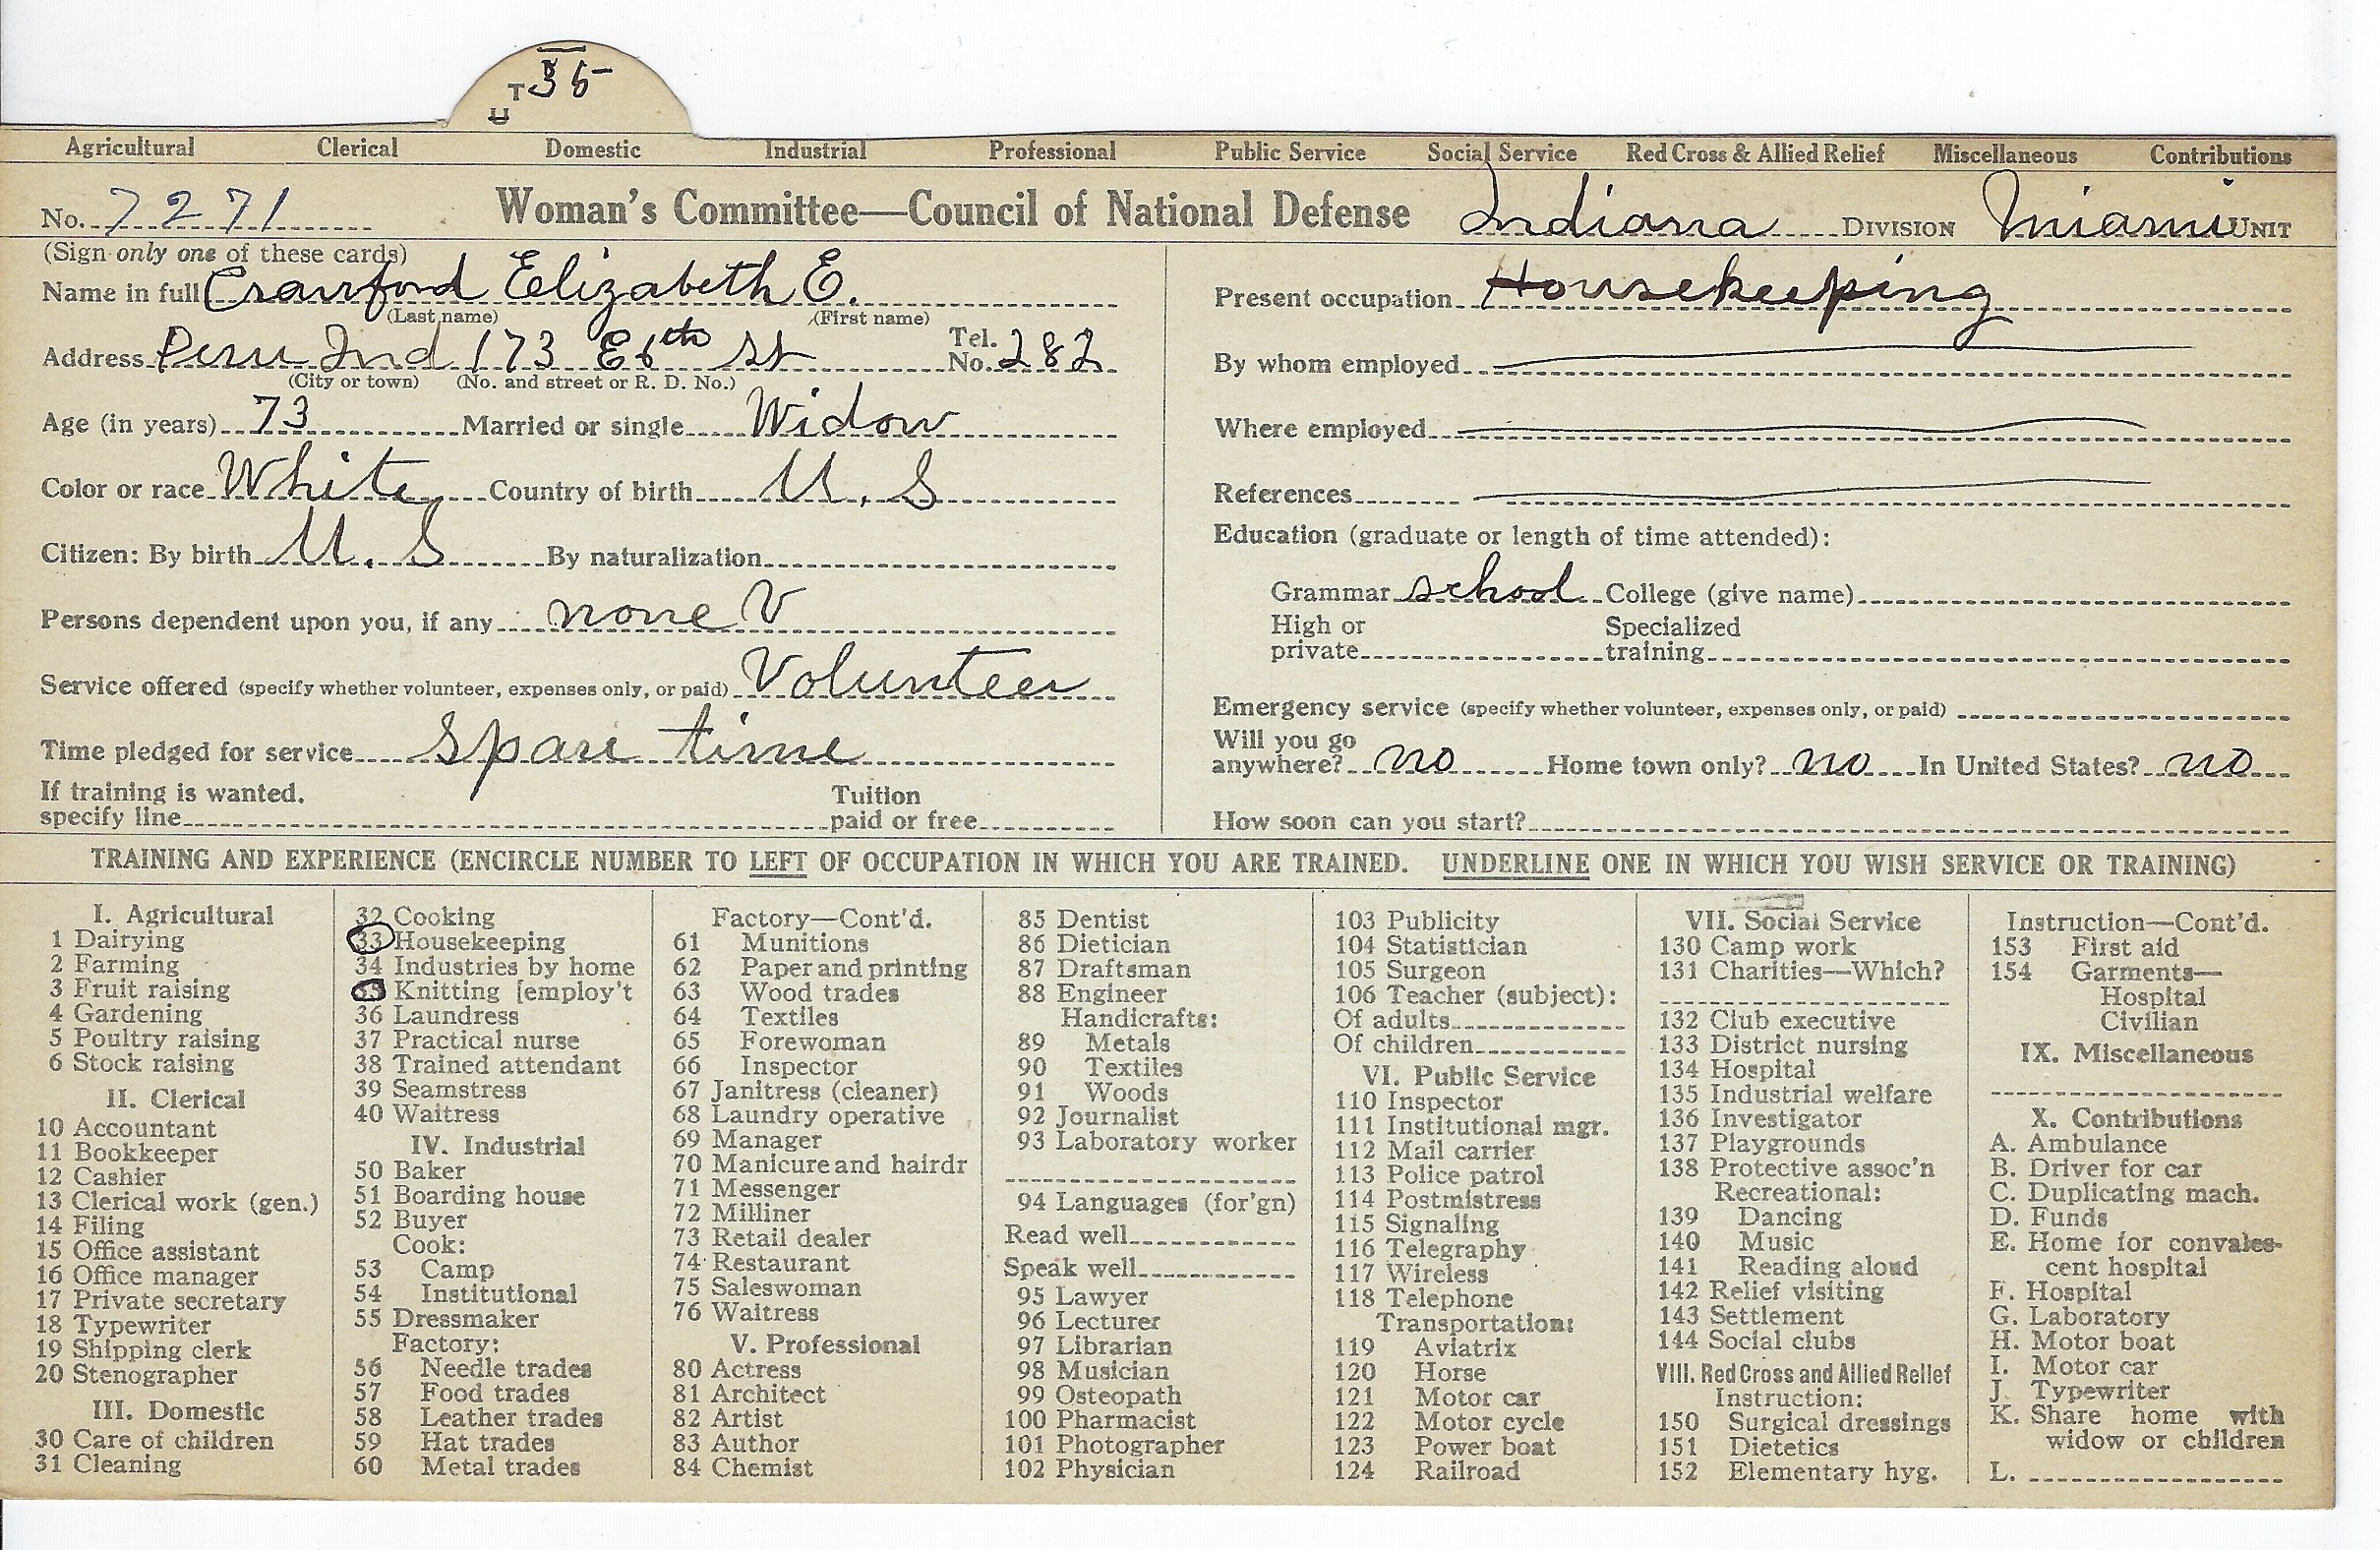 35
T
U
Agricultural Clerical Domestic Industrial Professional Public Service Social Service Red Cross & Allied Relief Miscellaneous Contributions
No. 7271 Woman's Committee—Council of National Defense Indiana DIVISION Miami UNIT
(Sign only one of these cards)
Name in full Crawford Elizabeth E.
(Last name) (First name)
Address Peru Ind 173 E 6th St Tel. No. 282
(City or town) (No. and street or R. D. No.)
Age (in years) 73 Married or single Widow
Color or race White Country of birth U. S
Citizen: By birth U. S By naturalization
Persons dependent upon you, if any none V
Service offered (specify whether volunteer, expenses only, or paid) Volunteer
Time pledged for service Spare time
If training is wanted, specify line Tuition paid or free
Present occupation Housekeeping
By whom employed
Where employed
References
Education (graduate or length of time attended):
Grammar school College (give name)
High or private Specialized training
Emergency service (specify whether volunteer, expenses only, or paid)
Will you go anywhere? no Home town only? no In United States? no
How soon can you start?
TRAINING AND EXPERIENCE (ENCIRCLE NUMBER TO LEFT OF OCCUPATION IN WHICH YOU ARE TRAINED. UNDERLINE ONE IN WHICH YOU WISH SERVICE OR TRAINING)
I. Agricultural
1 Dairying
2 Farming
3 Fruit raising
4 Gardening
5 Poultry raising
6 Stock raising
II. Clerical
10 Accountant
11 Bookkeeper
12 Cashier
13 Clerical work (gen.)
14 Filing
15 Office assistant
16 Office manager
17 Private secretary
18 Typewriter
19 Shipping clerk
20 Stenographer
III. Domestic
30 Care of children
31 Cleaning
32 Cooking
33 Housekeeping
34 Industries by home
35 Knitting [employ't
36 Laundress
37 Practical nurse
38 Trained attendant
39 Seamstress
40 Waitress
IV. Industrial
50 Baker
51 Boarding house
52 Buyer
Cook:
53 Camp
54 Institutional
55 Dressmaker
Factory:
56 Needle trades
57 Food trades
58 Leather trades
59 Hat trades
60 Metal trades
Factory—Cont'd.
61 Munitions
62 Paper and printing
63 Wood trades
64 Textiles
65 Forewoman
66 Inspector
67 Janitress (cleaner)
68 Laundry operative
69 Manager
70 Manicure and hairdr
71 Messenger
72 Milliner
73 Retail dealer
74 Restaurant
75 Saleswoman
76 Waitress
V. Professional
80 Actress
81 Architect
82 Artist
83 Author
84 Chemist
85 Dentist
86 Dietician
87 Draftsman
88 Engineer
Handicrafts:
89 Metals
90 Textiles
91 Woods
92 Journalist
93 Laboratory worker
94 Languages (for'gn)
Read well
Speak well
95 Lawyer
96 Lecturer
97 Librarian
98 Musician
99 Osteopath
100 Pharmacist
101 Photographer
102 Physician
103 Publicity
104 Statistician
105 Surgeon
106 Teacher (subject):
Of adults
Of children
VI. Public Service
110 Inspector
111 Institutional mgr.
112 Mail carrier
113 Police patrol
114 Postmistress
115 Signaling
116 Telegraphy
117 Wireless
118 Telephone
Transportation:
119 Aviatrix
120 Horse
121 Motor car
122 Motor cycle
123 Power boat
124 Railroad
VII. Social Service
130 Camp work
131 Charities—Which?
132 Club executive
133 District nursing
134 Hospital
135 Industrial welfare
136 Investigator
137 Playgrounds
138 Protective assoc'n
Recreational:
139 Dancing
140 Music
141 Reading aloud
142 Relief visiting
143 Settlement
144 Social clubs
VIII. Red Cross and Allied Relief
Instruction:
150 Surgical dressings
151 Dietetics
152 Elementary hyg.
Instruction—Cont'd.
153 First aid
154 Garments—
Hospital
Civilian
IX. Miscellaneous
X. Contributions
A. Ambulance
B. Driver for car
C. Duplicating mach.
D. Funds
E. Home for convales-
cent hospital
F. Hospital
G. Laboratory
H. Motor boat
I. Motor car
J. Typewriter
K. Share home with
widow or children
L.